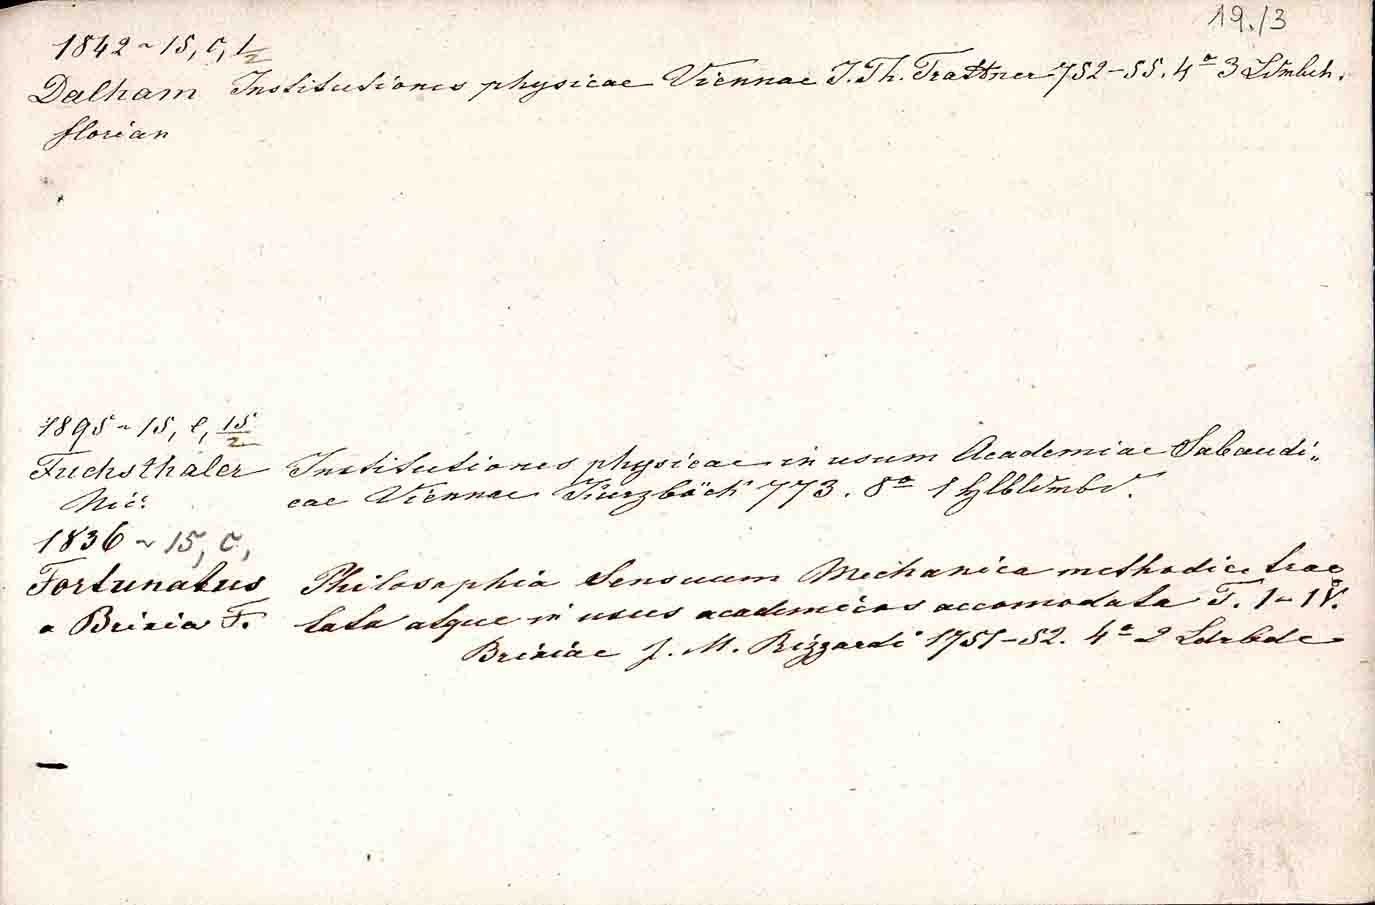 19./3
1842 ~ 15, c, 1/2
Dalham Institutiones physicae Viennae J. Th. Trattner 752-55. 4º 3
florian
1895 ~ 15, e, 15/2
Fuchsthaler Institutiones physicae in usum Academiae Sabaudi„
Nic: cae Viennae Kurzböck 773. 8º 1
1836 ~ 15, c,
Fortunatus Philosophia Sensuum Mechanica methodice trac
a Brixia F. tata atque in usus academicos accomodata T. I-IV.
Brixiae J. M. Rizzardi 1751-52. 4º 2